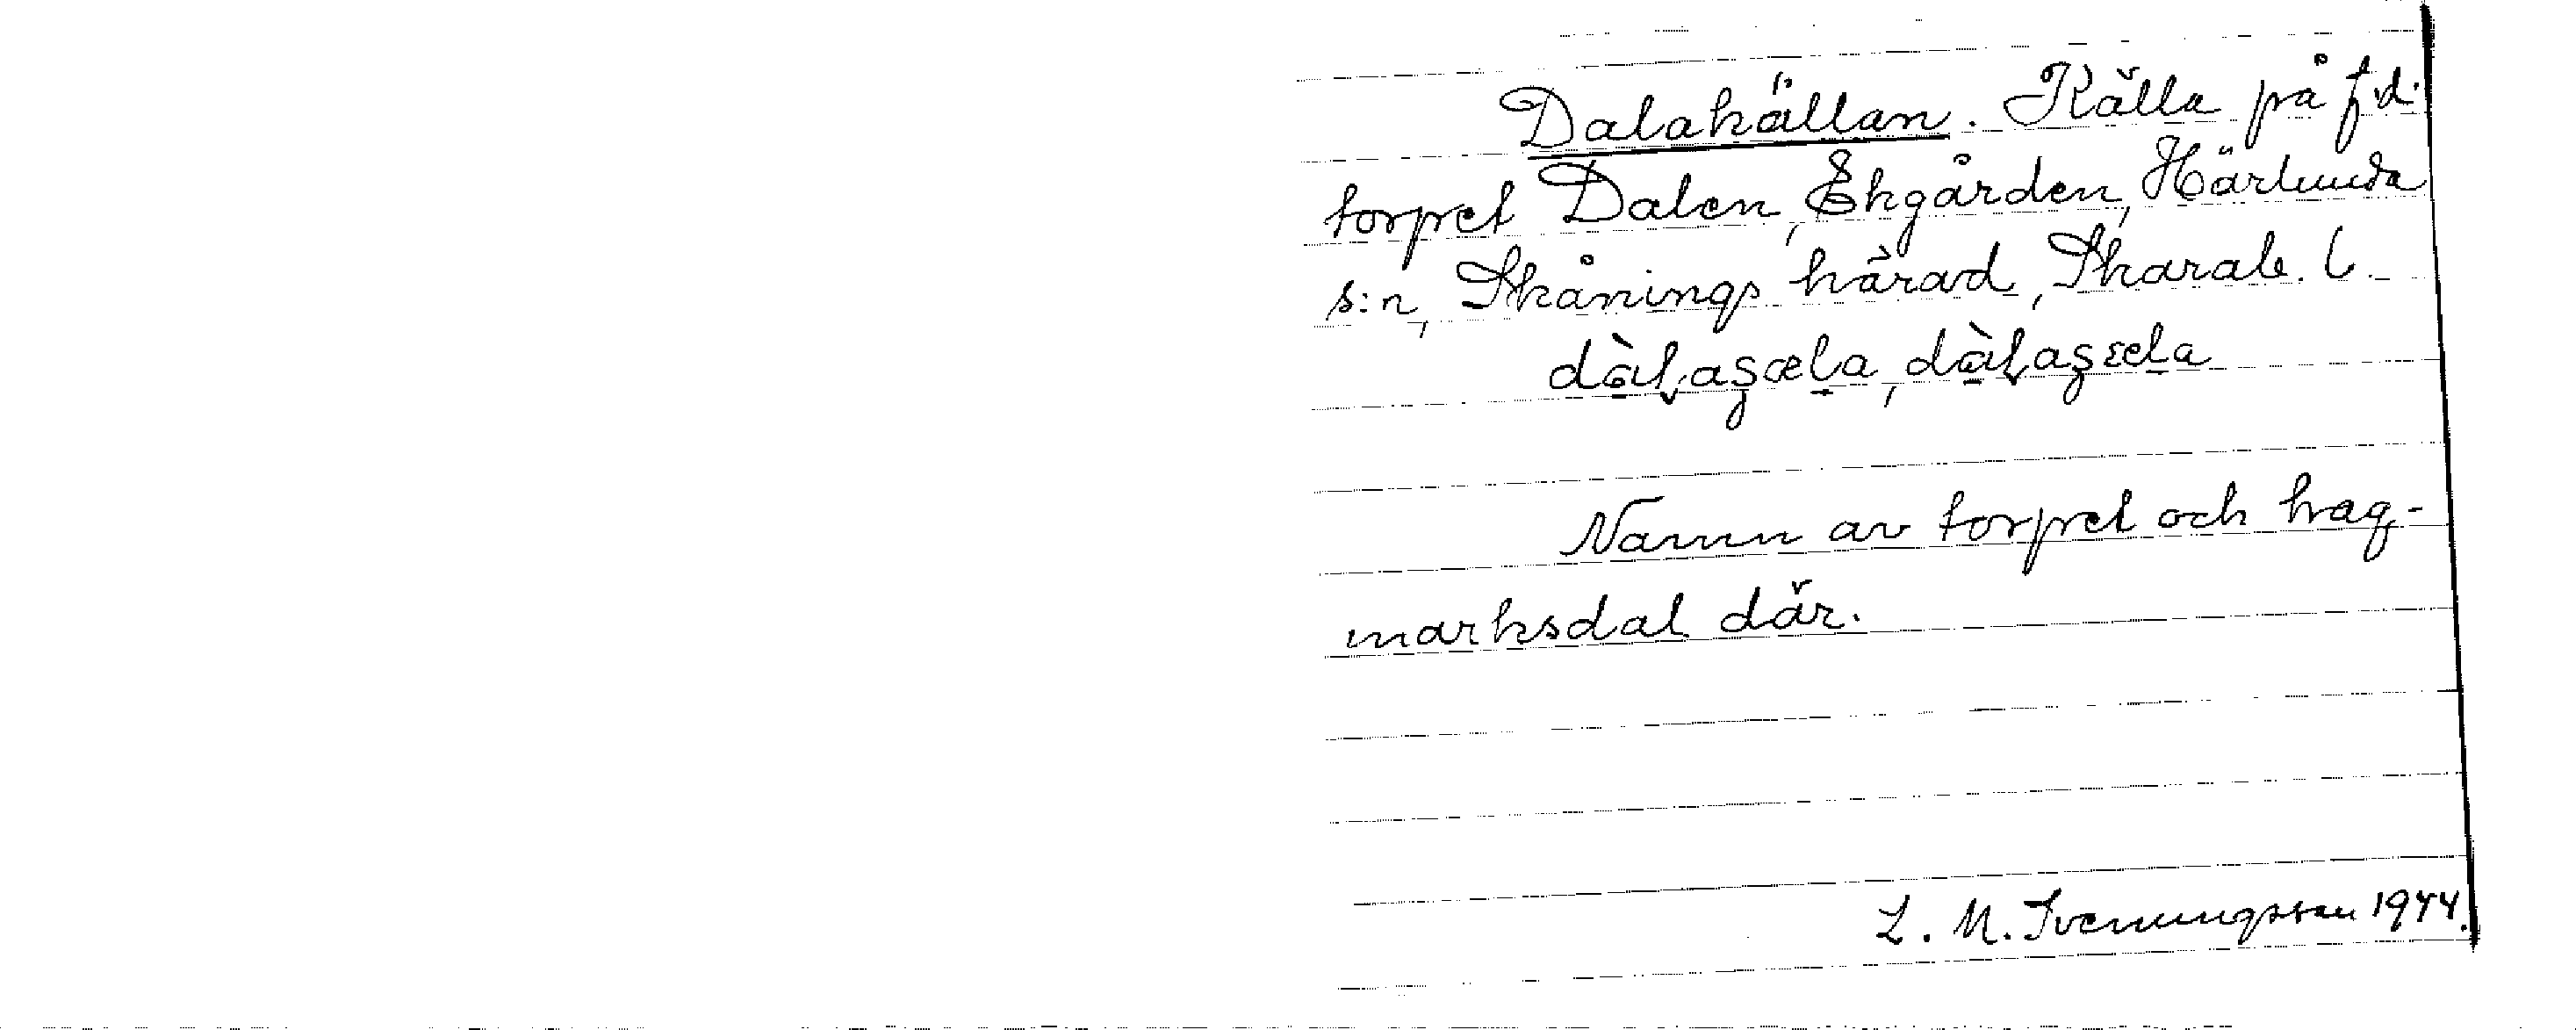 Dalakällan. Källa på f.d.
torpet Dalen, Ekgården, Härlunda
s:n, Skånings härad, Skarab. l.
Namn av torpet och hag-
marksdal där.
L. M. Svenungsson 1944.